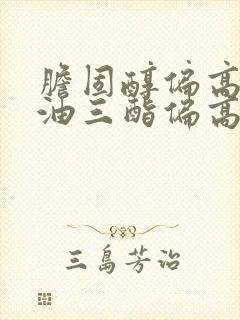 膽固醇偏高
油三酯偏高
三島芳治